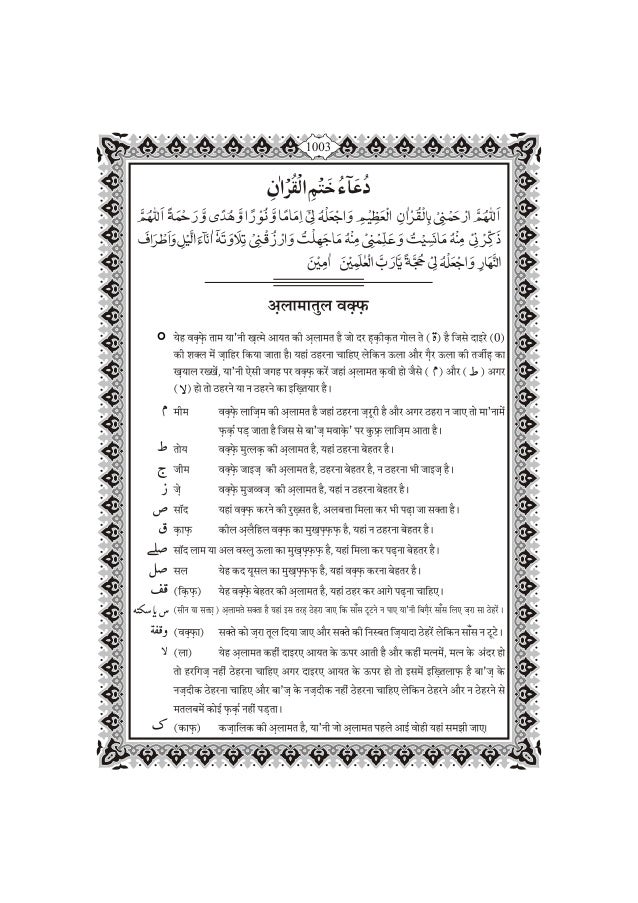 1003
دُعَآءُ خَتْمِ الْقُرْاٰنِ
اَللّٰهُمَّ ارْحَمْنِىْ بِالْقُرْاٰنِ الْعَظِيْمِ وَاجْعَلْهُ لِىْ اِمَامًا وَّنُوْرًا وَّهُدًى وَّرَحْمَةً اَللّٰهُمَّ
ذَكِّرْنِىْ مِنْهُ مَانَسِيْتُ وَعَلِّمْنِىْ مِنْهُ مَاجَهِلْتُ وَارْزُقْنِىْ تِلَاوَتَهٗ اٰنَآءَ الَّيْلِ وَاَطْرَافَ
النَّهَارِ وَاجْعَلْهُ لِىْ حُجَّةً يَّارَبَّ الْعٰلَمِيْنَ اٰمِيْنَ
अ़लामातुल वक़्फ़
० येह वक़्फ़े ताम या'नी ख़त्मे आयत की अ़लामत है जो दर ह़क़ीक़त गोल ते (ۃ) है जिसे दाइरे (0)
की शक्ल में ज़ाहिर किया जाता है। यहां ठहरना चाहिए लेकिन ऊला और ग़ैर ऊला की तर्जीह़ का
ख़याल रख्खें, या'नी ऐसी जगह पर वक़्फ़ करें जहां अ़लामत क़वी हो जैसे (م) और (ط) अगर
(لا) हो तो ठहरने या न ठहरने का इख़्तियार है।
م मीम वक़्फ़े लाज़िम की अ़लामत है जहां ठहरना ज़रूरी है और अगर ठहरा न जाए तो मा'नामें
फ़र्क़ पड़ जाता है जिस से बा'ज़ मवाक़े' पर कुफ़्र लाज़िम आता है।
ط तोय वक़्फ़े मुत्लक़ की अ़लामत है, यहां ठहरना बेहतर है।
ج जीम वक़्फ़े जाइज़ की अ़लामत है, ठहरना बेहतर है, न ठहरना भी जाइज़ है।
ز ज़े वक़्फ़े मुजव्वज़ की अ़लामत है, यहां न ठहरना बेहतर है।
ص सॉद यहां वक़्फ़ करने की रुख़्सत है, अलबत्ता मिला कर भी पढ़ा जा सक्ता है।
ق क़ाफ़ कील अ़लैहिल वक़्फ़ का मुख़फ़्फ़फ़ है, यहां न ठहरना बेहतर है।
صلے सॉद लाम या अल वस्लु ऊला का मुख़फ़्फ़फ़ है, यहां मिला कर पढ़ना बेहतर है।
صل सल येह कद यूसल का मुख़फ़्फ़फ़ है, यहां वक़्फ़ करना बेहतर है।
قف (क़िफ़) येह वक़्फ़े बेहतर की अ़लामत है, यहां ठहर कर आगे पढ़ना चाहिए।
س یا سکته (सीन या सक्तह) अ़लामते सक्ता है यहां इस तरह़ ठेहरा जाए कि साँस टूटने न पाए या'नी बिग़ैर साँस लिए ज़रा सा ठेहरें।
وقفة (वक़्फ़ा) सक्ते को ज़रा तूल दिया जाए और सक्ते की निस्बत ज़ियादा ठेहरें लेकिन साँस न टूटे।
لا (ला) येह अ़लामत कहीं दाइरए आयत के ऊपर आती है और कहीं मत्नमें, मत्न के अंदर हो
तो हरगिज़ नहीं ठेहरना चाहिए अगर दाइरए आयत के ऊपर हो तो इसमें इख़्तिलाफ़ है बा'ज़ के
नज़दीक ठेहरना चाहिए और बा'ज़ के नज़दीक नहीं ठेहरना चाहिए लेकिन ठेहरने और न ठेहरने से
मतलबमें कोई फ़र्क़ नहीं पड़ता।
ک (काफ़) कज़ालिक की अ़लामत है, या'नी जो अ़लामत पहले आई वोही यहां समझी जाए।